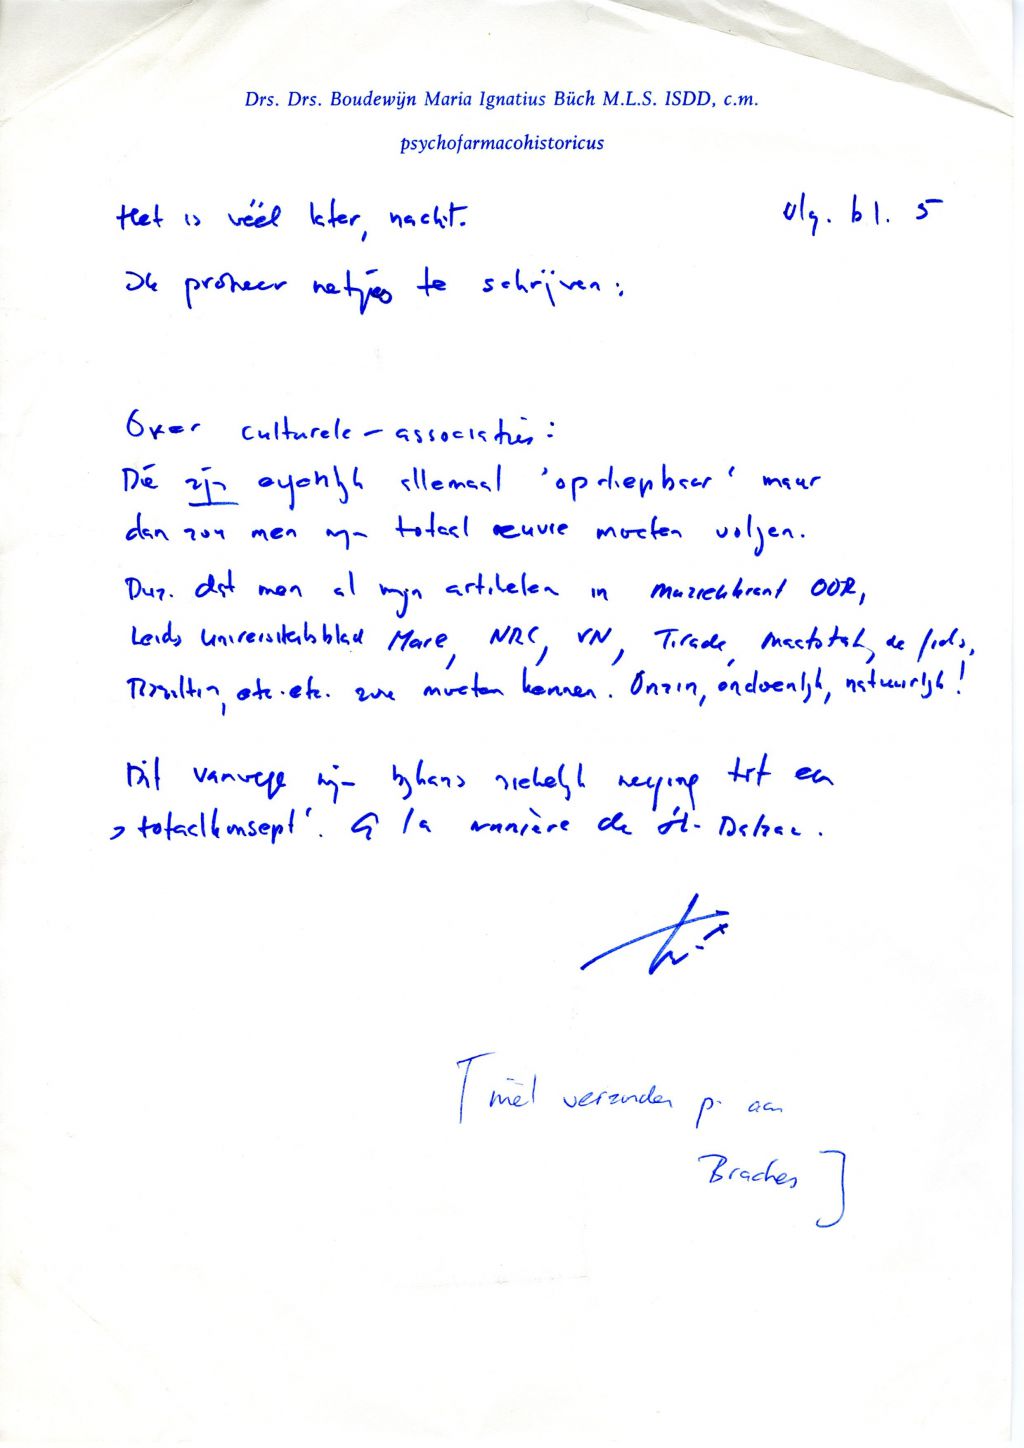 Drs. Drs. Boudewijn Maria Ignatius Büch M.L.S. ISDD, c.m.
psychofarmacohistoricus
Het is véél later, nacht.
vlg. bl. 5
Ik probeer netjes te schrijven:
Over culturele-associaties:
Die zijn eigenlijk allemaal 'opdiepbaar' maar
dan zou men mijn totaal œuvre moeten volgen.
D.w.z. dat men al mijn artikelen in muziekkrant OOR,
Leids universiteitsblad Mare, NRC, VN, Tirade, Maatstaf, de Gids,
etc. etc. zou moeten kennen. Onzin, ondoenlijk, natuurlijk!
Dit vanwege mijn bijkans ziekelijk neiging tot een
'totaalkonsept'. à la manière de Balzac.
[niet verzonden p. aan
Braches]